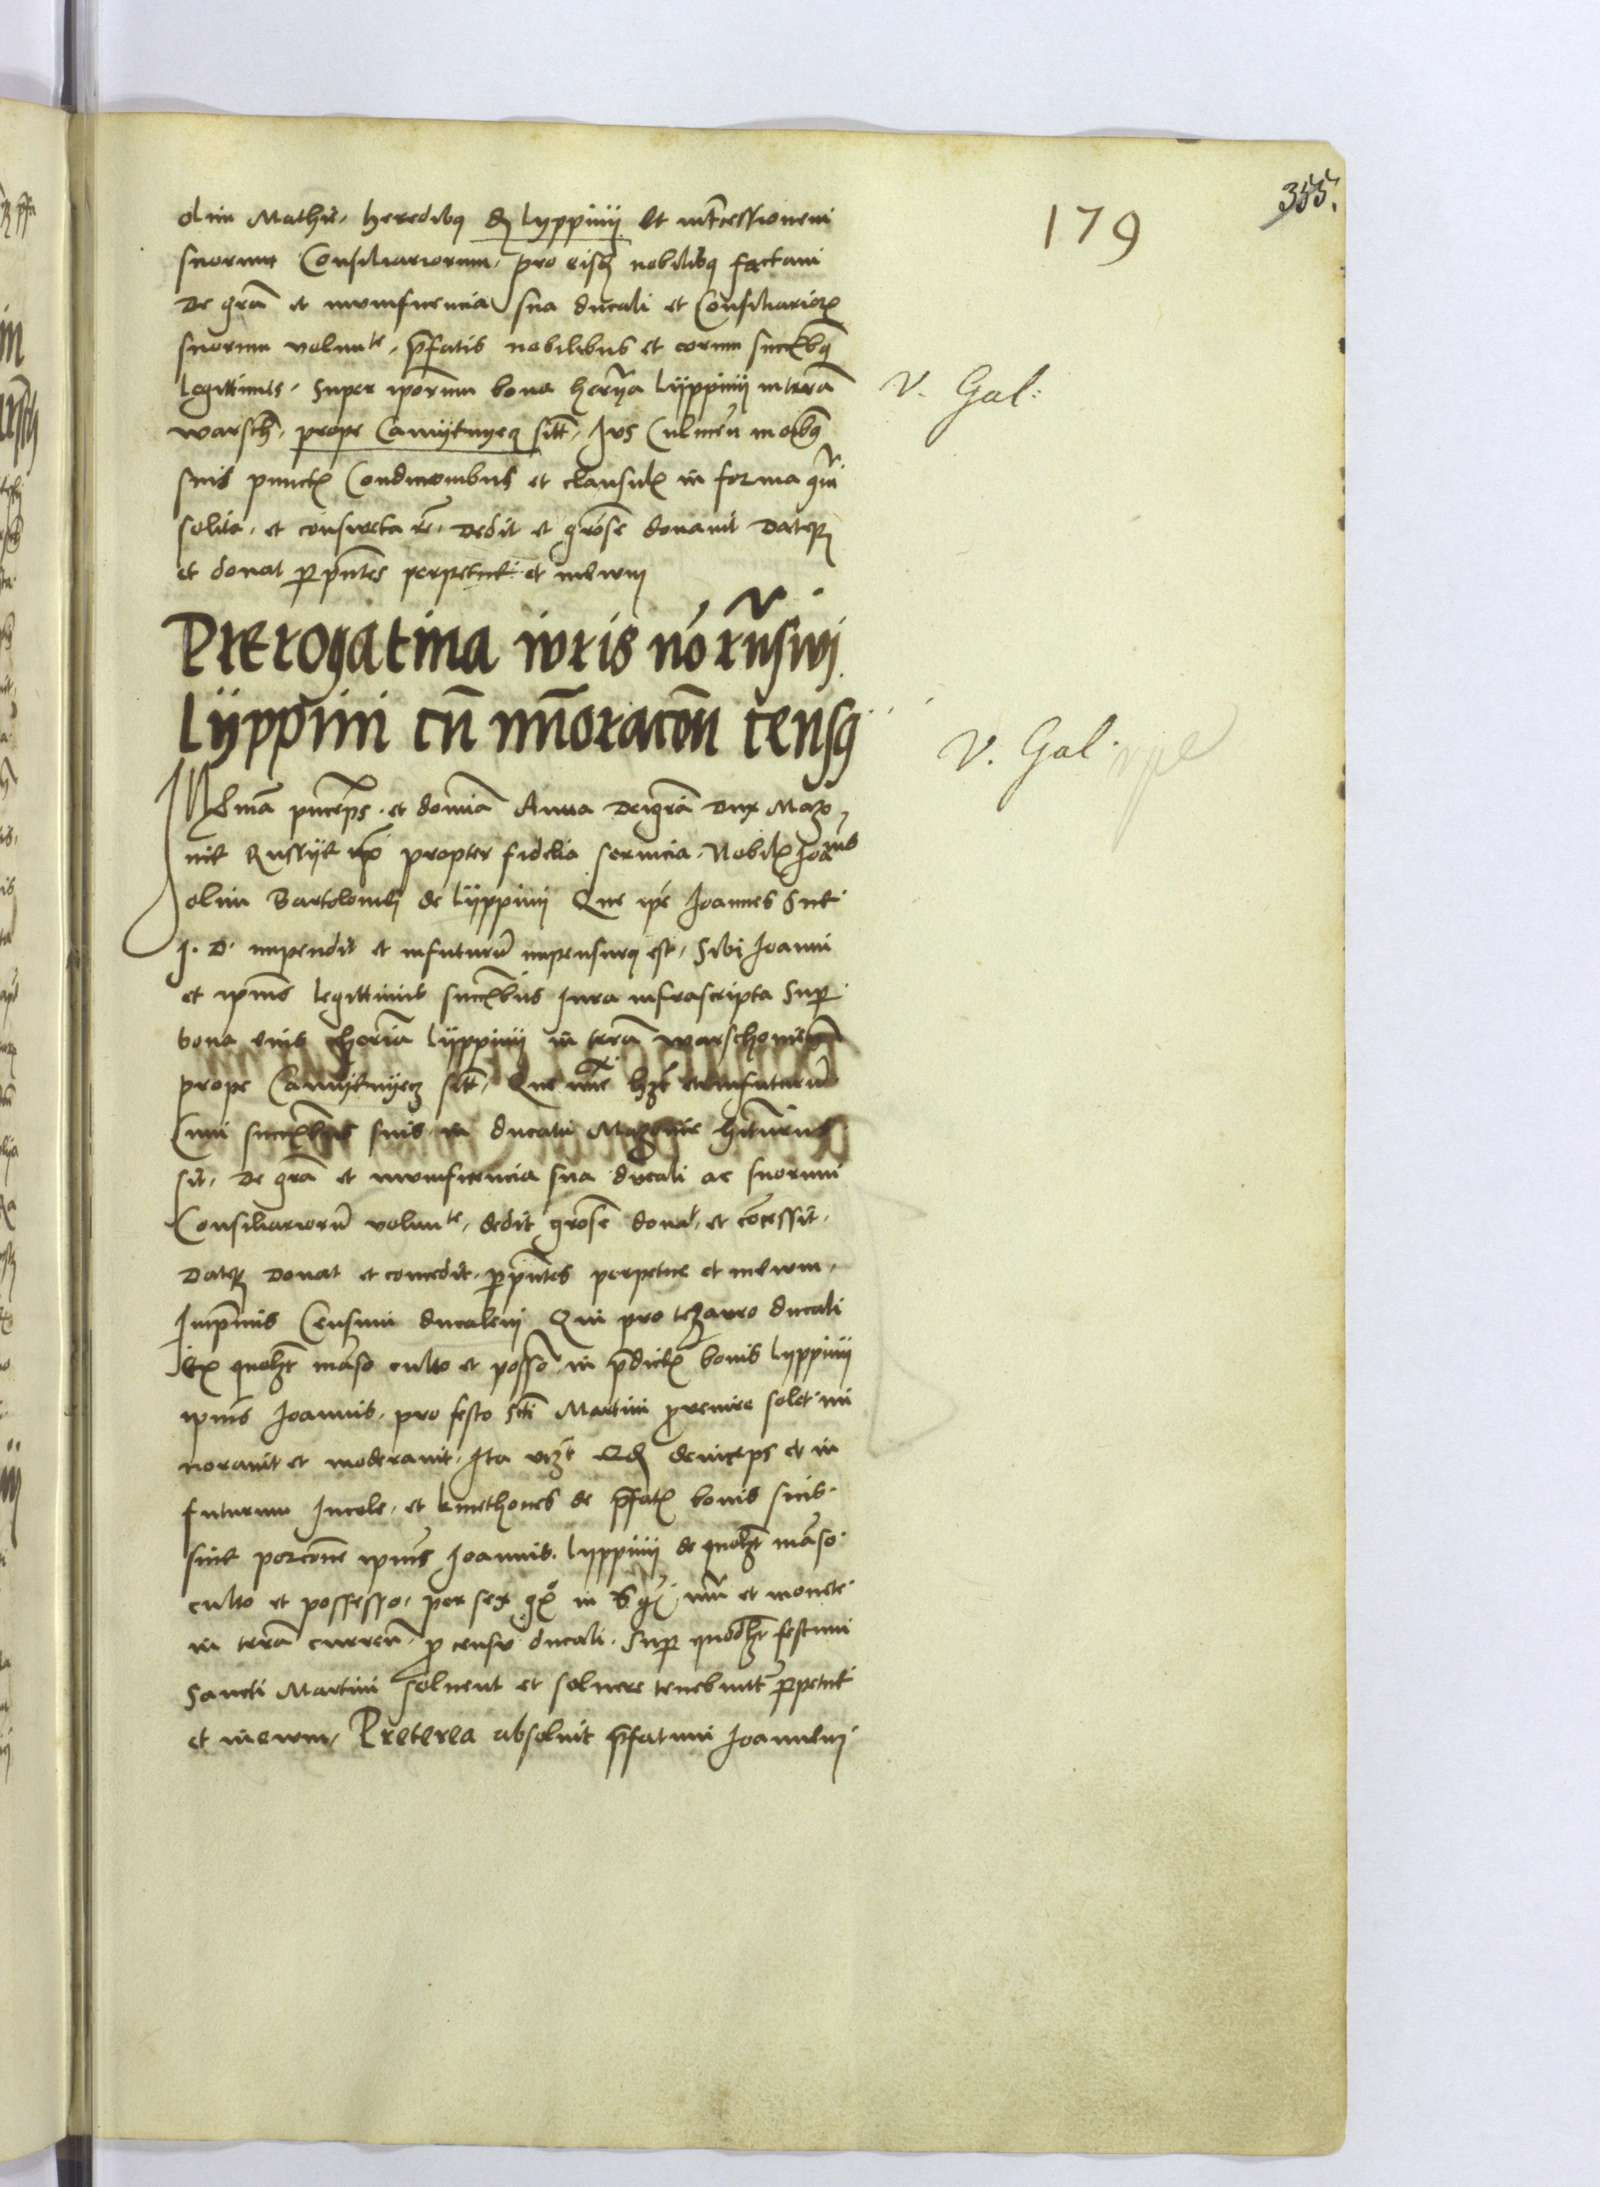 355.
179
olim Mathie, heredibus de Lyppiny et intercessionem
suorum Consiliariorum, pro eisdem nobilibus factam
De gra et munificencia sua ducali et Consiliariorum
suorum volunte, prefatis nobilibus et eorum succbus
legittimis, super ipsorum bona heria Lyppiny in terra
V. Gal:
warsch, prope Camyknyecz sitt, Jus Culmen in oibus
suis punctis Condicionibus et clausulis in forma
solita, et consweta Dedit et grose donavit Datque
et donat per pntes perpetue et in ewm
Prerogativa iwris no
Lyppini cu minoracom censq
V. Gal
Illma princeps et domina Anna Dei gra Dux Mazo
vie Russyeque propter fidelia servicia Nobilis Joanis
olim Bartolomei de Lyppiny Que ipse Joannes Sue
I. D. impendit et in futuru impensurus est, Sibi Joanni
et ipius legittimis succbus Jura infrascripta Super
bona eius heria Lyppiny in terra warschoviens
prope Camyknyecz sitt, Que nunc hzt et in futuru
Cum succbus suis in ducatu Mazovie hiturus
sit, De gra et munificencia sua ducali ac suorum
Consiliarioru volunte, dedit grose donat, et concessit,
Datque Donat et concedit, per pntes perpetue et in ewm,
Inprimis Censum ducalem Qui pro tezauro ducali
Ex quolzt manso culto et posso in predictis bonis Lyppiny
ipius Joannis, pro festo Scti Martini provenire solet mi
noravit et moderavit, Ita vczt Qd deinceps et in
futurum Incole, et kmethones de prefatis bonis sicis
sive porcone ipius Joannis Lyppiny de quolzt manso
culto et possesso, per sex in nui et monete
in terra curren, pro censu ducali, Super quodlzt festum
Sancti Martini solvent et solvere tenebunt perpetue
et in ewm, Preterea absolvit prefatum Joannem